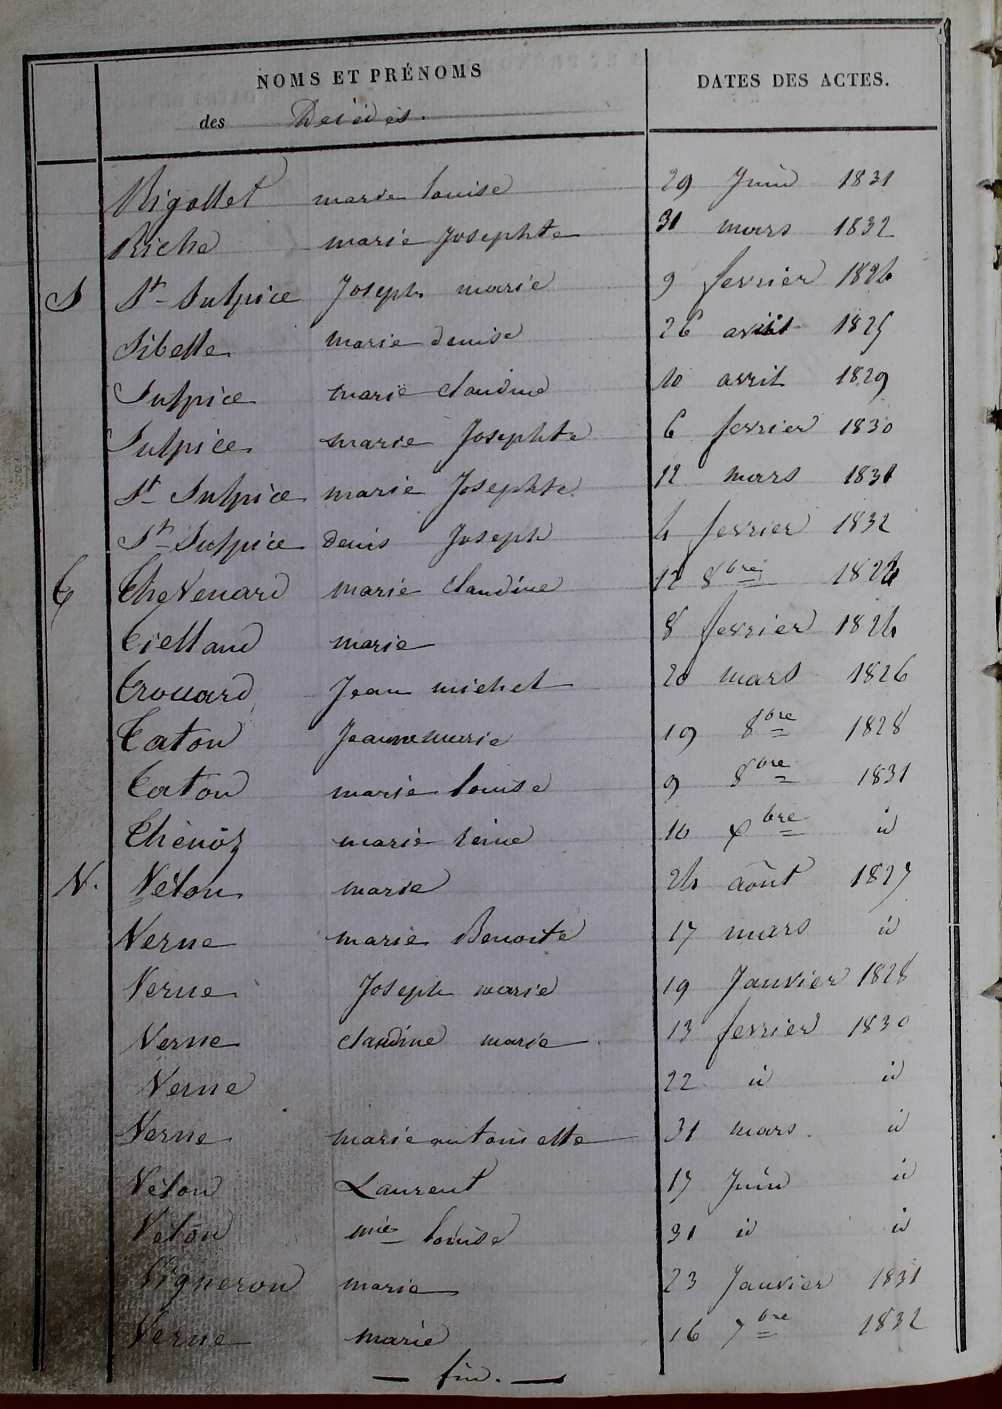 NOMS ET PRÉNOMS DATES DES ACTES.
des Décédés.
Rigollet marie louise 29 Juin 1831
Riche marie Josephte 31 mars 1832
S St Sulpice Joseph marie 9 fevrier 1824
Sibelle marie denise 26 avril 1825
Sulpice marie claudine 10 avril 1829
Sulpice marie Josephte 6 fevrier 1830
St Sulpice marie Josephte 12 mars 1831
St Sulpice denis Joseph 4 fevrier 1832
T Thevenard marie claudine 12 8bre
Tielland marie 8 fevrier 1824
Trouard Jean michel 20 mars 1826
Taton Jeanne marie 19 8bre 1828
Taton marie louise 9 8bre 1831
Thenoz marie reine 10 xbre id
V. Véton marie 24 août 1827
Verne marie Benoite 17 mars id
Verne Joseph marie 19 Janvier 1828
Verne claudine marie 13 fevrier 1830
Verne 22 id id
Verne marie antoinette 31 mars id
Véton Laurent 17 Juin id
Veton mie louise 31 id id
Vigneron marie 23 Janvier 1831
Verne marie 16 7bre 1832
— fin. —